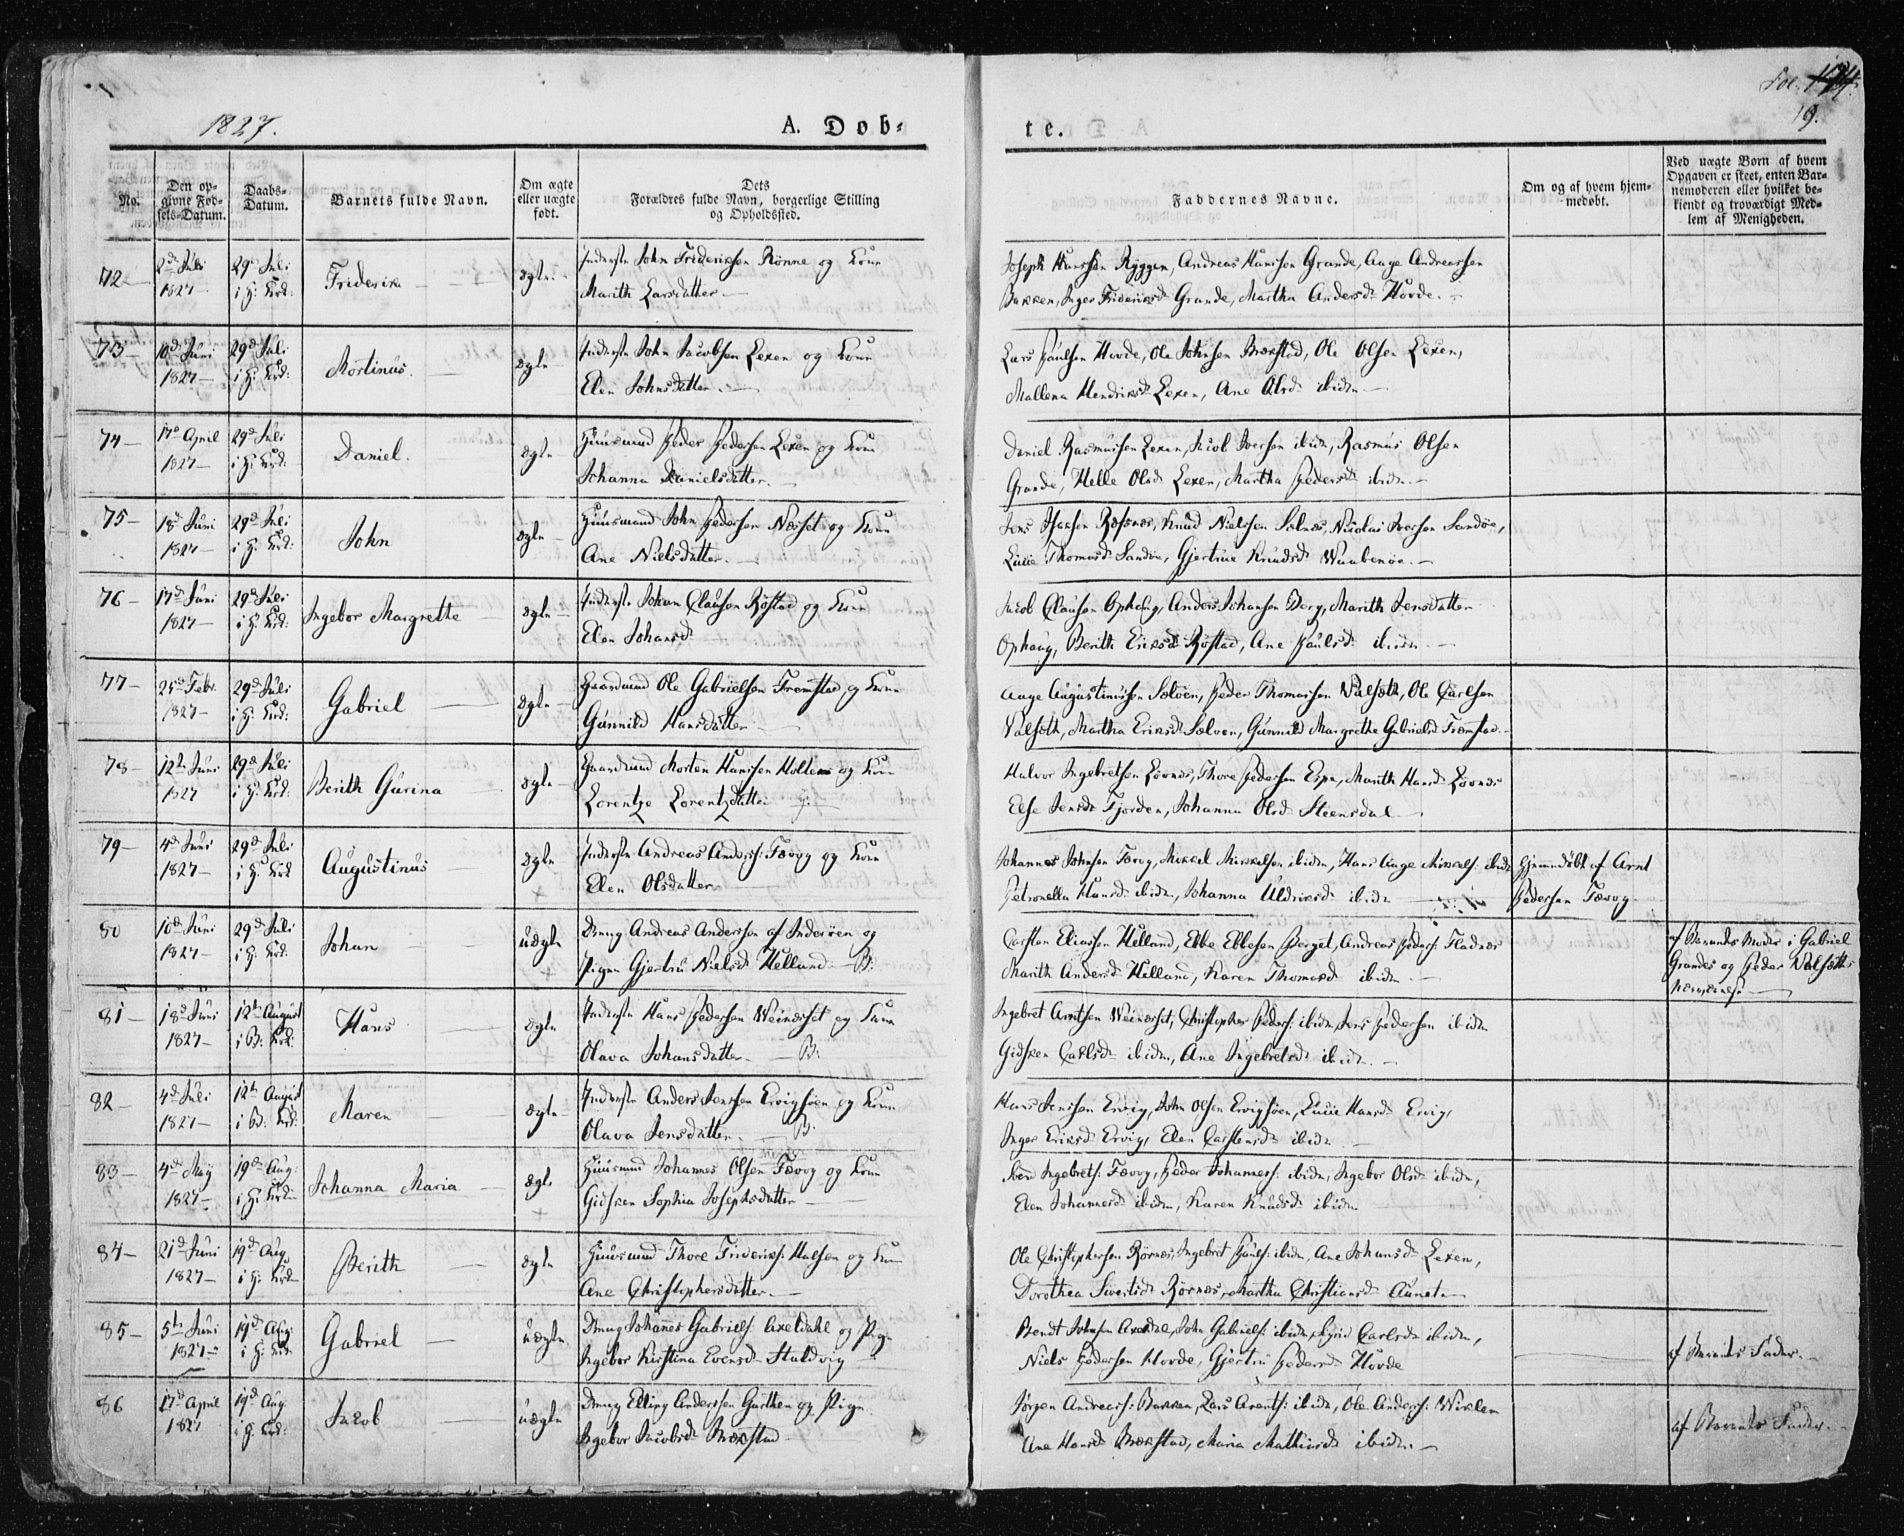 1827.
A. Døb-
te.
Fol. 174.
19.
No.
Den op-
givne Fød-
sels-Datum.
Daabs-
Datum.
Barnets fulde Navn.
Om ægte
eller uægte
født.
Dets
Forældres fulde Navn, borgerlige Stilling
og Opholdssted.
Faddernes Navne.
Om og af hvem hjem-
medøbt.
Ved uægte Børn af hvem
Opgaven er skeet, enten Bar-
nemoderen eller hvilket be-
kiendt og troværdigt Med-
lem af Menigheden.
72 -
2d Juli
1827
29d Juli
i H: Krd:
Friderik
ægte
Inderste John Friderichsen Rønne og Kone
Marith Larsdatter
Joseph Hansen Ryggen, Andreas Hansen Grande, Aage Andreassen
Bakken, Inger Frideriksd Grande, Martha Andersd Hovde.
73 -
10d Juni
1827 -
29d Juli
i H: Krd:
Mortinus.
ægte
Inderste John Jacobsen Lexen og Kone
Elen Johnsdatter
Lars Paulsen Hovde, Ole Johnsen Brækstad, Ole Olsen Lexen,
Mallena Hendriksd Lexen, Ane Olsd ibidm
74 -
17d April
1827 -
29d Juli
i H: Krd:
Daniel.
ægte
Huusmand Peder Pedersen Lexen og Kone
Johanna Danielsdatter.
Daniel Rasmusen Lexen, Jacob Iversen ibidm, Rasmus Olsen
Grande, Helle Olsd Lexen, Martha Pedersd ibidm
75 -
18d Juni
1827 -
29d Juli
i H: Krd:
John
ægte
Huusmand John Pedersen Næsset og Kone
Ane Nielsdatter
Jens Knud Nielsen Nicolai Iversen Sandøe,
Thomasd Sandøe, Gjertrue Knudsd
76 -
17d Juni
1827 -
29d Juli
i H: Krd:
Ingebor Margrethe
ægte
Inderste Johan Clausen Røstad og Kone
Elen Johansd
Jacob Clausen Ophaug, Anders Johansen Berg, Marith Jensdatter
Ophaug, Berith Eriksd Røstad, Ane Paulsd ibidm
77 -
25d Febr.
1827 -
29d Juli
i H: Krd:
Gabriel
ægte
Gaardmand Ole Gabrielsen Fremstad og Kone
Gunnild Hansdatter
Aage Augustinussen Selven, Peder Thomassen Valseth, Ole Carlsen
Valseth, Martha Eriksd Selven, Gunnild Margrethe Gabrielsd Fremstad
78 -
12te Juni
1827
29d Juli
i H: Krd:
Berith Gurina
ægte
Gaardmand Morten Hansen Holten og Kone
Lorentze Lorentzdatter
Halvor Ingebretsen Løvnæs, Thore Pedersen Espe, Marith Hansd Løvnæs
Else Jensd Fjorden, Johanna Olsd Steensdal
79 -
4d Juni
1827 -
29d Juli
i H: Krd
Augustinus
ægte
Inderste Andreas Anders: Fævog og Kone
Elen Olsdatter
Johannes Johnsen Fævog, Mikkel Mikkelsen ibidm, Hans Aage Mikkels: ibidm
Petronella Hansd ibidm, Johanna Uldriksd ibidm
Hjemmedøbt af Arnt
Pedersen Fævog
80
10d Juni
1827 -
29d Juli
i H: Krd:
Johan
uægte
Dreng Andreas Andersen af Inderøen og
Pigen Gjertru Nielsd Helland B:
Carsten Eliassen Helland, Ebbe Ebbesen Berget, Andreas Peders: Fladnæs
Marith Andersd Helland, Karen Thomasd ibidm
af Barnets Moder i Gabriel
Grandes og Peder Valseths
Nærværelse
81 -
18d Juni
1827 -
12te August
i B: Krd:
Hans
ægte
Inderste Hans Pedersen Weinæsset og Kone
Olava Johansdatter B:
Ingebret Arntsen Weinæsset, Christopher Peders: ibidm, Jens Pedersen ibidm
Gidsken Carlsd ibidm, Ane Ingebretsd ibidm
82 -
4d Juli
1827 -
12te August
i B: Krd:
Maren
ægte
Inderste Anders Jensen Ervigsøen og Kone
Olava Jensdatter. B:
Hans Jensen Ervig, John Olsen Ervigsøen, Hansd Ervig,
Inger Eriksd Ervig, Elen Carstensd ibidm
83 -
4d May
1827 -
19d Aug:
i H: Krd
Johanna Maria
ægte
Huusmand Johannes Olsen Fævog og Kone
Gidsken Sophia Josephsdatter
Ingebrets: Fævog, Peder Johanness: ibidm, Ingebor Olsd ibidm,
Elen Johannesd ibidm, Karen Knudsd ibidm
84 -
21d Juni
1827 -
19d Aug.
i H: Krd
Berith
ægte
Huusmand Thore Frideriks: Halsen og Kone
Ane Christophersdatter
Ole Christophersen Rørnæs, Ingebret Pauls: ibidm, Ane Johansd Lexen,
Dorothea Sivertsd Rørnæs, Martha Christiansd Aunet
85 -
5te Juni
1827
19d Aug:
i H: Krd:
Gabriel
uægte
Dreng Johannes Gabriels: Axeldahl og Pige
Ingebor Kirstina Evensd Staldvig
Bendt Johnsen Axeldal, John Gabriels: ibidm, Carlsd ibidm,
Niels Pedersen Hovde, Gjertru Pedersd Hovde
af Barnets Fader.
86
17d April
1827
19d Aug
i H: Krd:
Jacob
uægte
Dreng Elling Andersen Garthen og Pige
Ingebor Jacobsd Brækstad
Jørgen Andreass: Bakken, Lars Arents: ibidm, Ole Anders: Wiklem
Ane Hansd Brækstad, Maria Mathiasd ibidm.
af Barnets Fader.